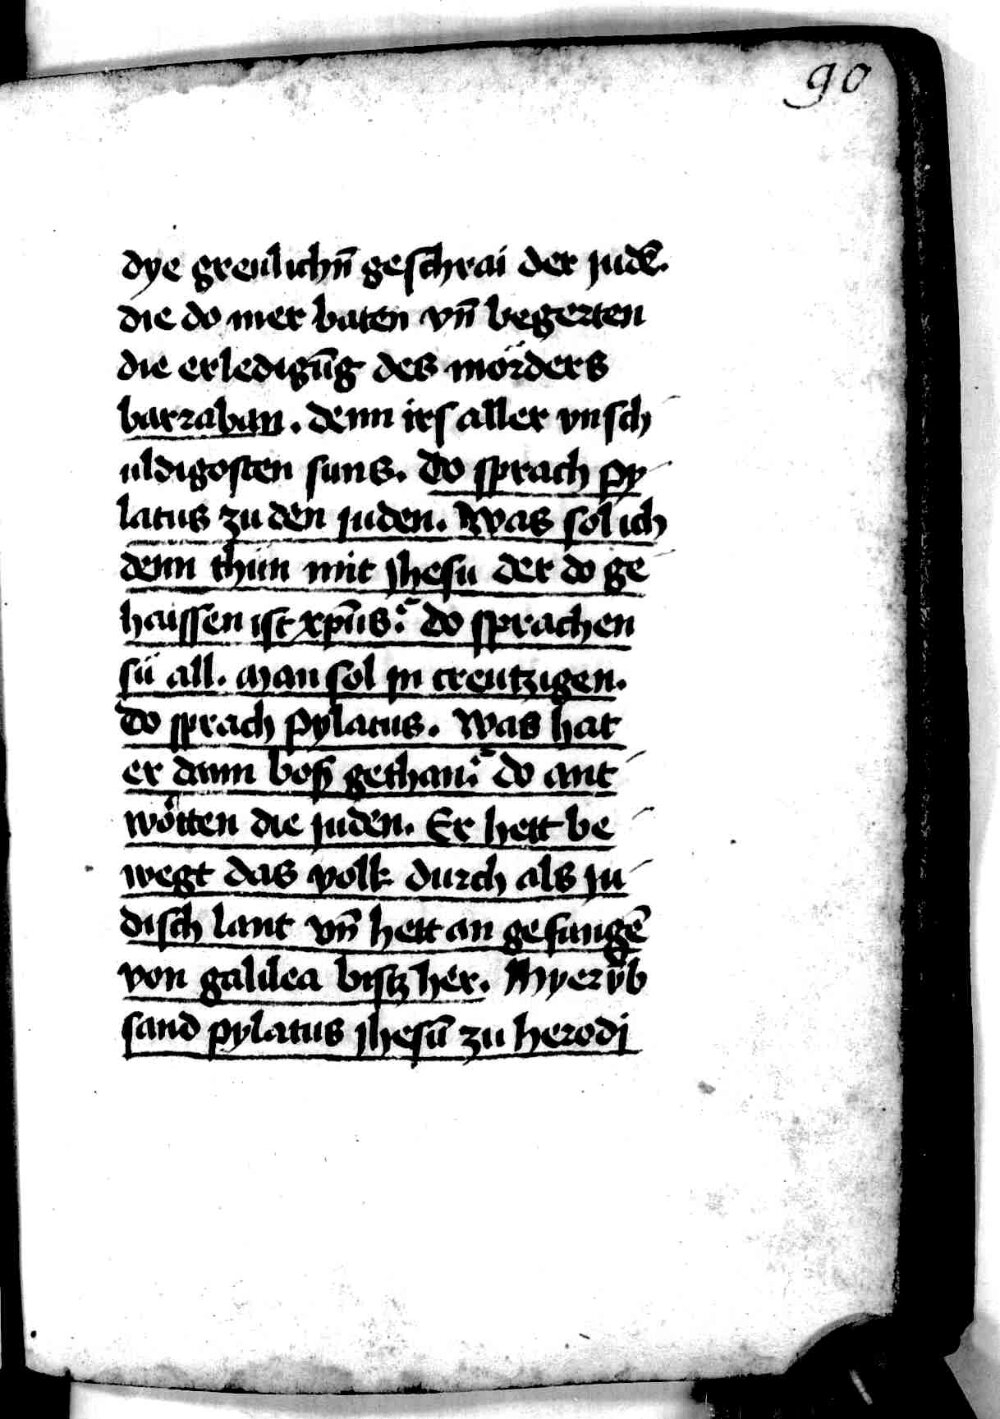 90
dye greulichn̄ geschrai der judē.
die do mer baten vn̄ begerten
die erledigūg des mörders
barraban. denn irs aller vnsch
uldigosten suns. do sprach py
latus zu den juden. Was sol ich
denn thün mit jhesu der do ge
haissen ist xp̄us? do sprachen
sü all. man sol jn creutzigen.
do sprach pylatus. Was hat
er dann boß gethan? do ant
wötten die juden. Er hett be
wegt das volk durch als ju
disch lant vn̄ hett an gefangē
von galilea bisz her. Hyerüb
sand pylatus jhesū zu herodj